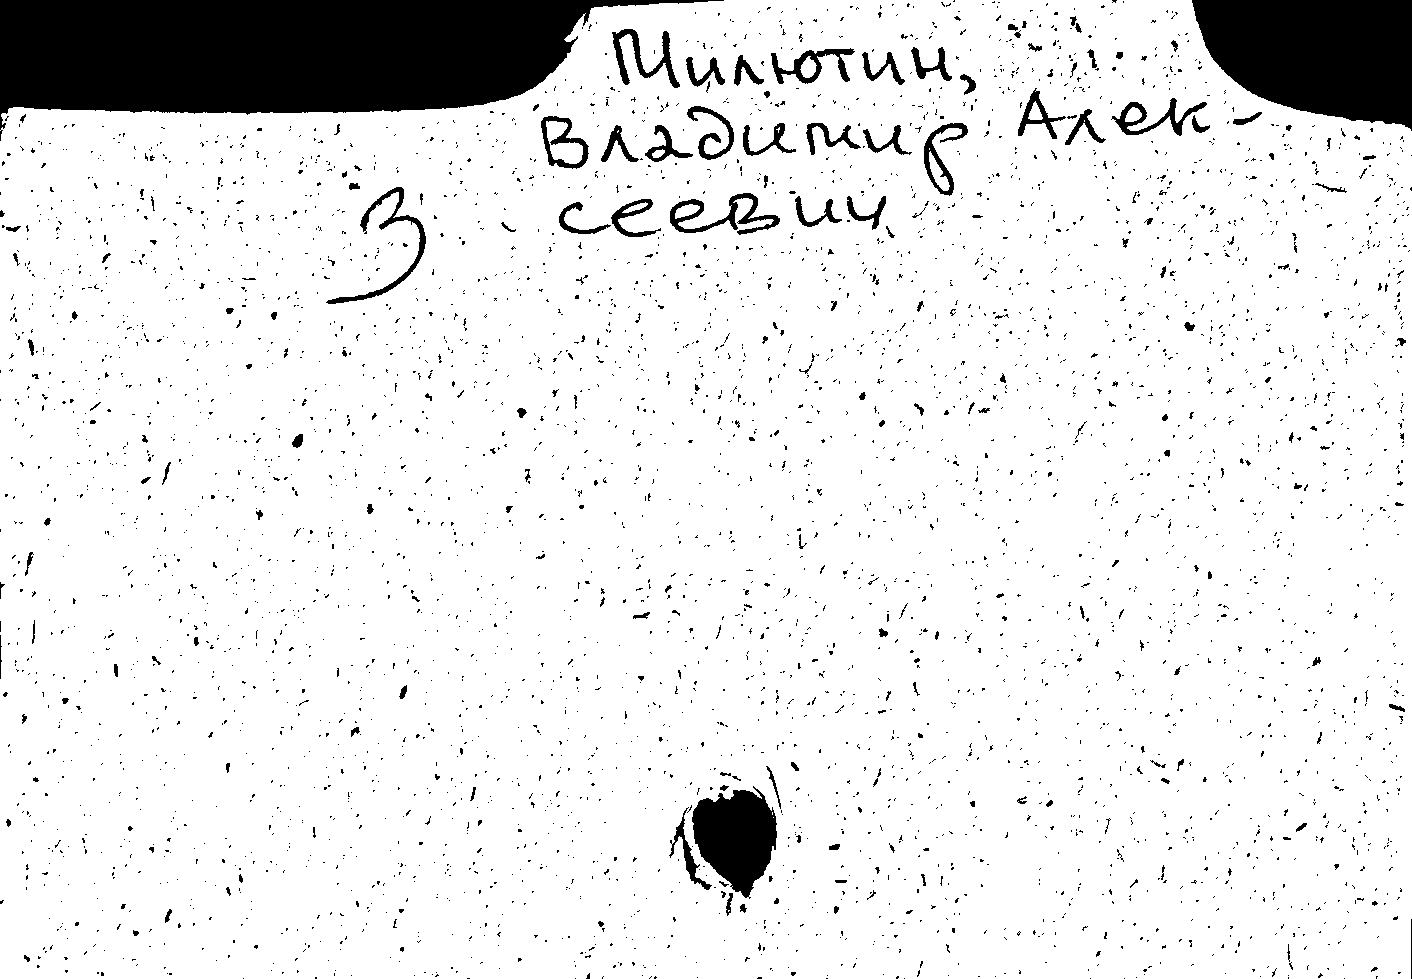 Милютин,
Владимир Алек-
сеевич
3